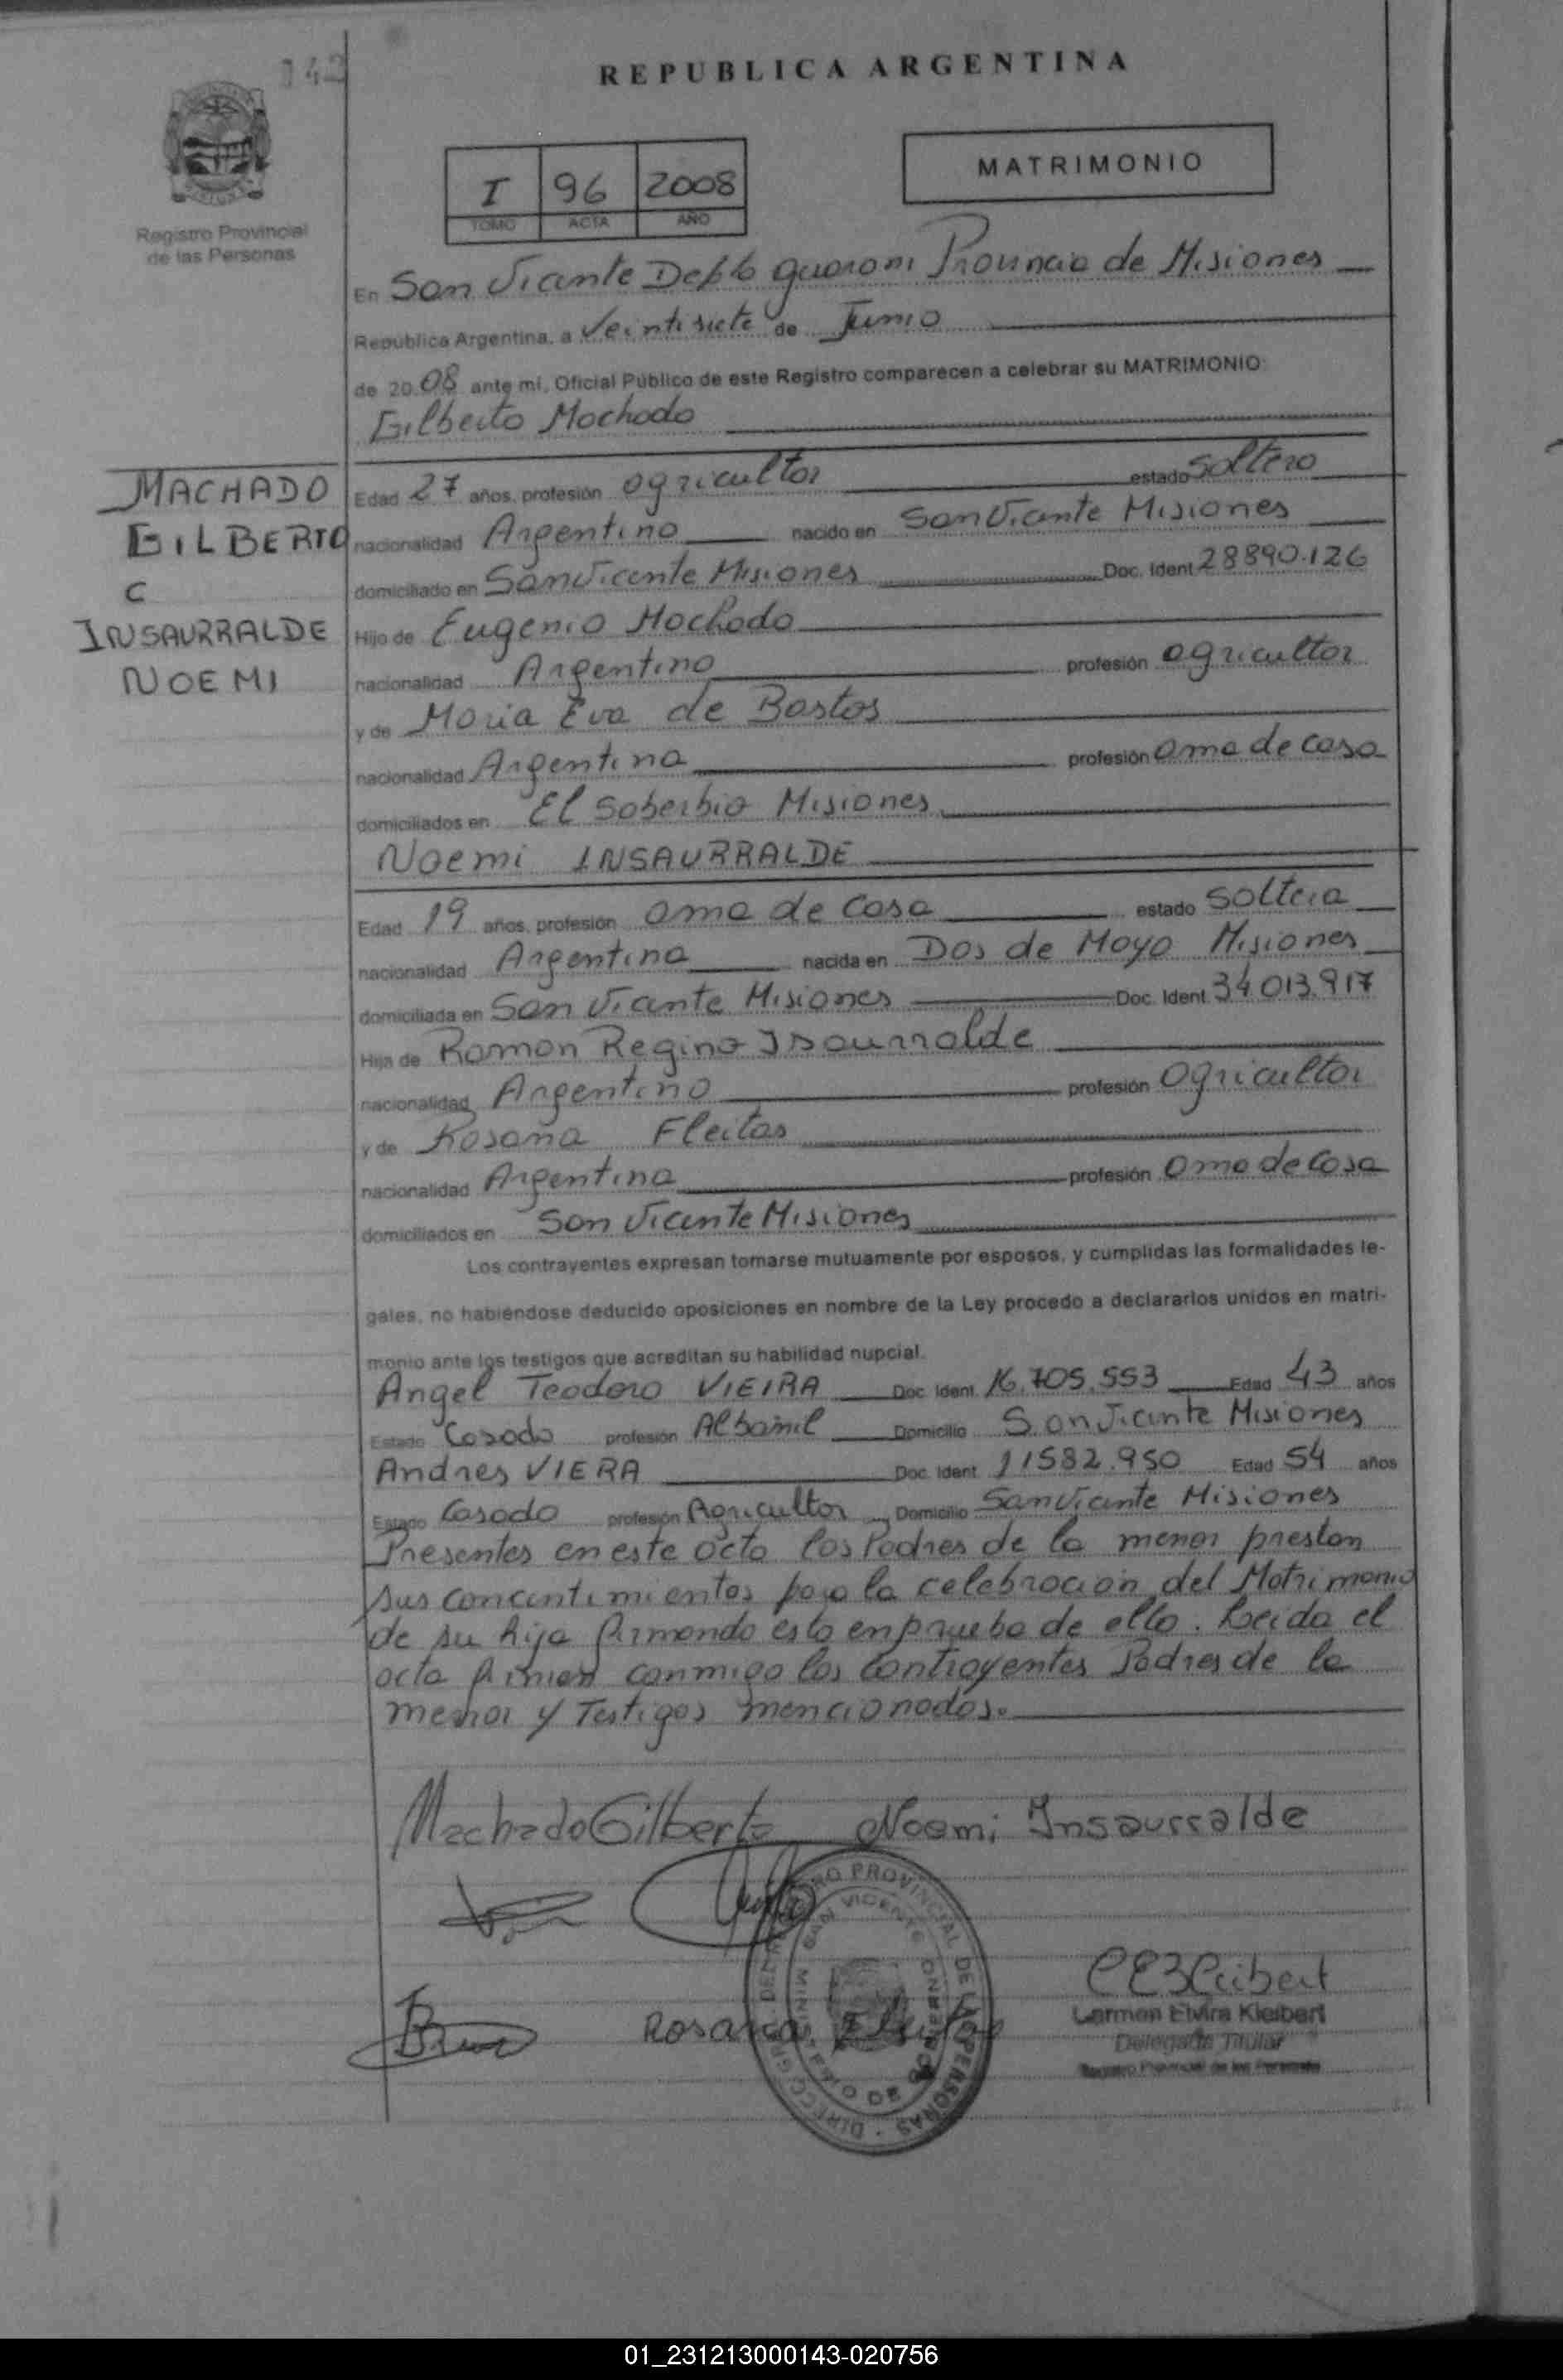 142
REPUBLICA ARGENTINA
Registro Provincial
de las Personas
I 96 2008
TOMO ACTA AÑO
MATRIMONIO
En San Vicente Depto guaroni Provincia de Misiones
Republica Argentina, a Veintisiete de Junio
de 2008 ante mi, Oficial Público de este Registro comparecen a celebrar su MATRIMONIO:
Gilberto Machado
MACHADO
GILBERTO
C
INSAURRALDE
NOEMI
Edad 27 años, profesión agricultor estado Soltero
nacionalidad Argentino nacido en San Vicente Misiones
domiciliado en San Vicente Misiones Doc. Ident. 28890.126
Hijo de Eugenio Machado
nacionalidad Argentino profesión agricultor
y de Maria Eva de Bastos
nacionalidad Argentina profesión ama de casa
domiciliados en El Soberbio Misiones
Noemi INSAURRALDE
Edad 19 años, profesión ama de casa estado Soltera
nacionalidad Argentina nacida en Dos de Mayo Misiones
domiciliada en San Vicente Misiones Doc. Ident. 34.013.917
Hija de Ramon Regino Isaurralde
nacionalidad Argentino profesión agricultor
y de Rosana Fleitas
nacionalidad Argentina profesión ama de casa
domiciliados en San Vicente Misiones
Los contrayentes expresan tomarse mutuamente por esposos, y cumplidas las formalidades le-
gales, no habiéndose deducido oposiciones en nombre de la Ley procedo a declararlos unidos en matri-
monio ante los testigos que acreditan su habilidad nupcial.
Angel Teodoro VIEIRA Doc. Ident. 16.705.553 Edad 43 años
Estado Casado profesión Albañil Domicilio San Vicente Misiones
Andres VIERA Doc. Ident. 11582.950 Edad 54 años
Estado Casado profesión Agricultor Domicilio San Vicente Misiones
Presentes en este acto los Padres de la menor prestan
sus concentimientos para la celebracion del Matrimonio
de su hija firmando esto en prueba de ello. Leida el
acta firman conmigo los contrayentes Padres de la
menor y Testigos mencionados.
Machado Gilberto Noemi Insaurralde
Rosana Fleitas
Carmen Elvira Kleibert
Delegada Titular
Registro Provincial de las Personas
DIRECC. GRAL. DEL REGISTRO PROVINCIAL DE LAS PERSONAS
SAN VICENTE
MINISTERIO DE GOBIERNO
01_231213000143-020756